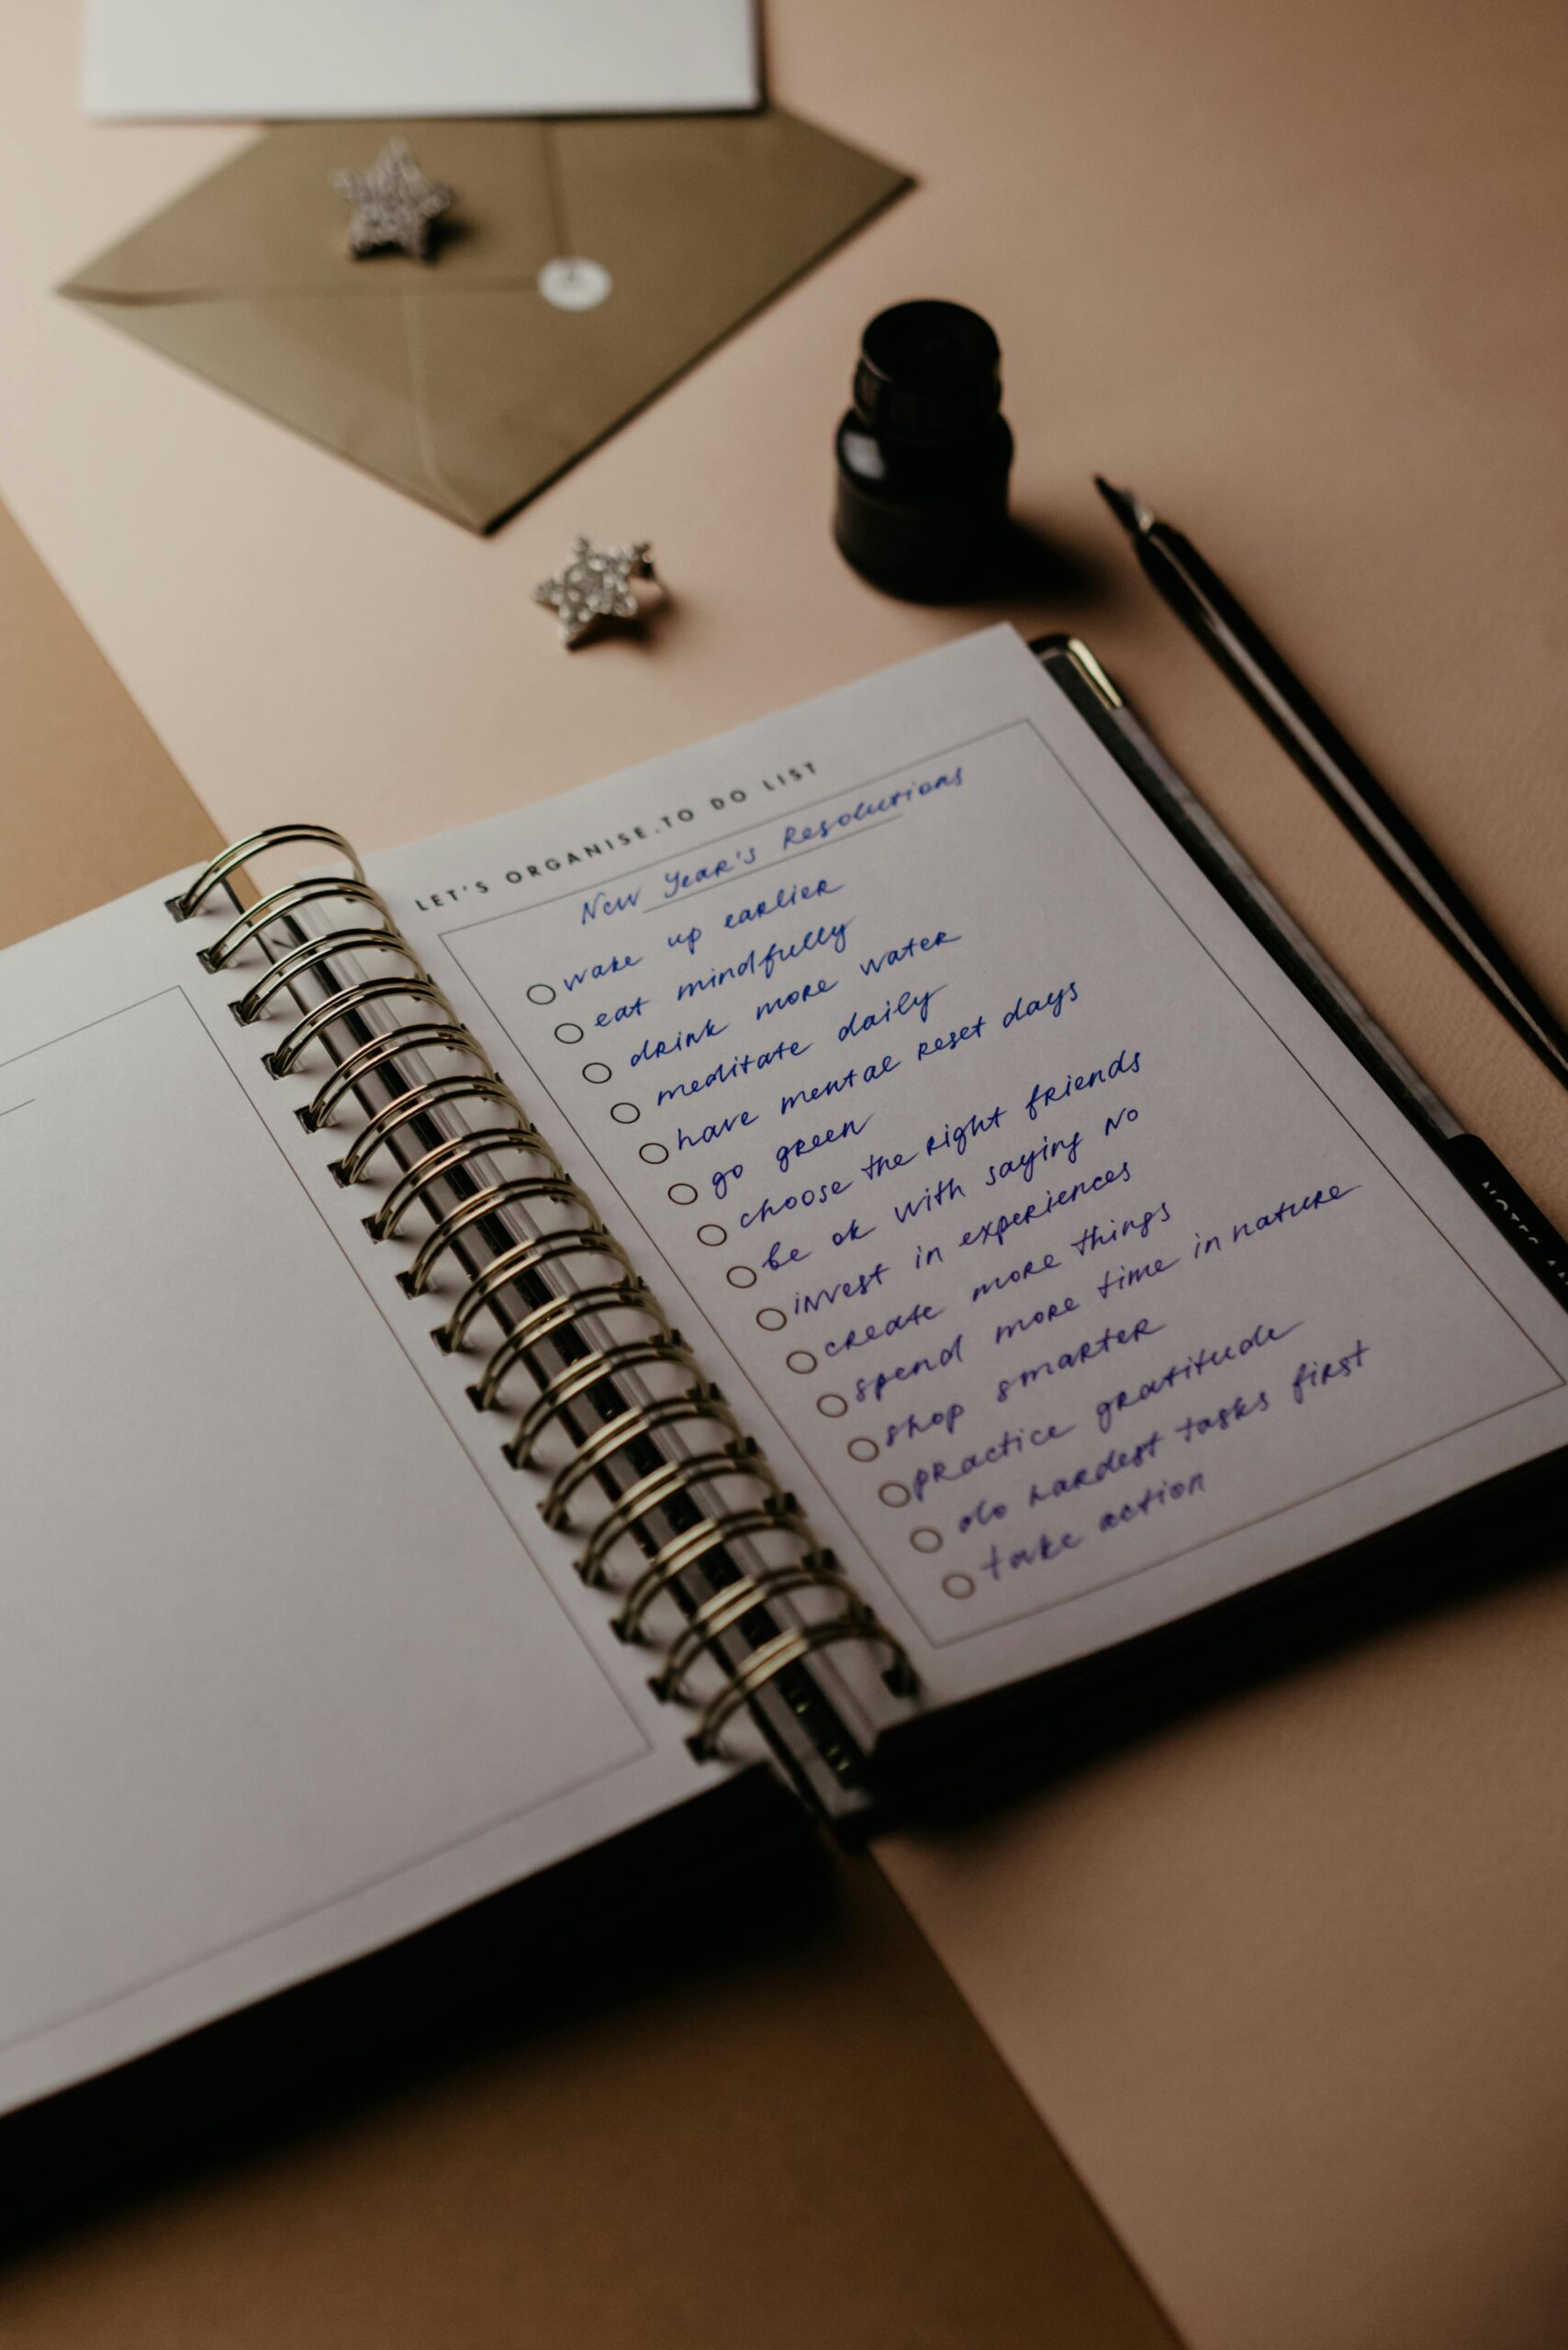 LET'S ORGANISE.TO DO LIST
New Year's Resolutions
wake up earlier
eat mindfully
drink more water
meditate daily
have mental reset days
go green
choose the right friends
be ok with saying no
invest in experiences
create more things
spend more time in nature
shop smarter
practice gratitude
do hardest tasks first
take action
NOTES